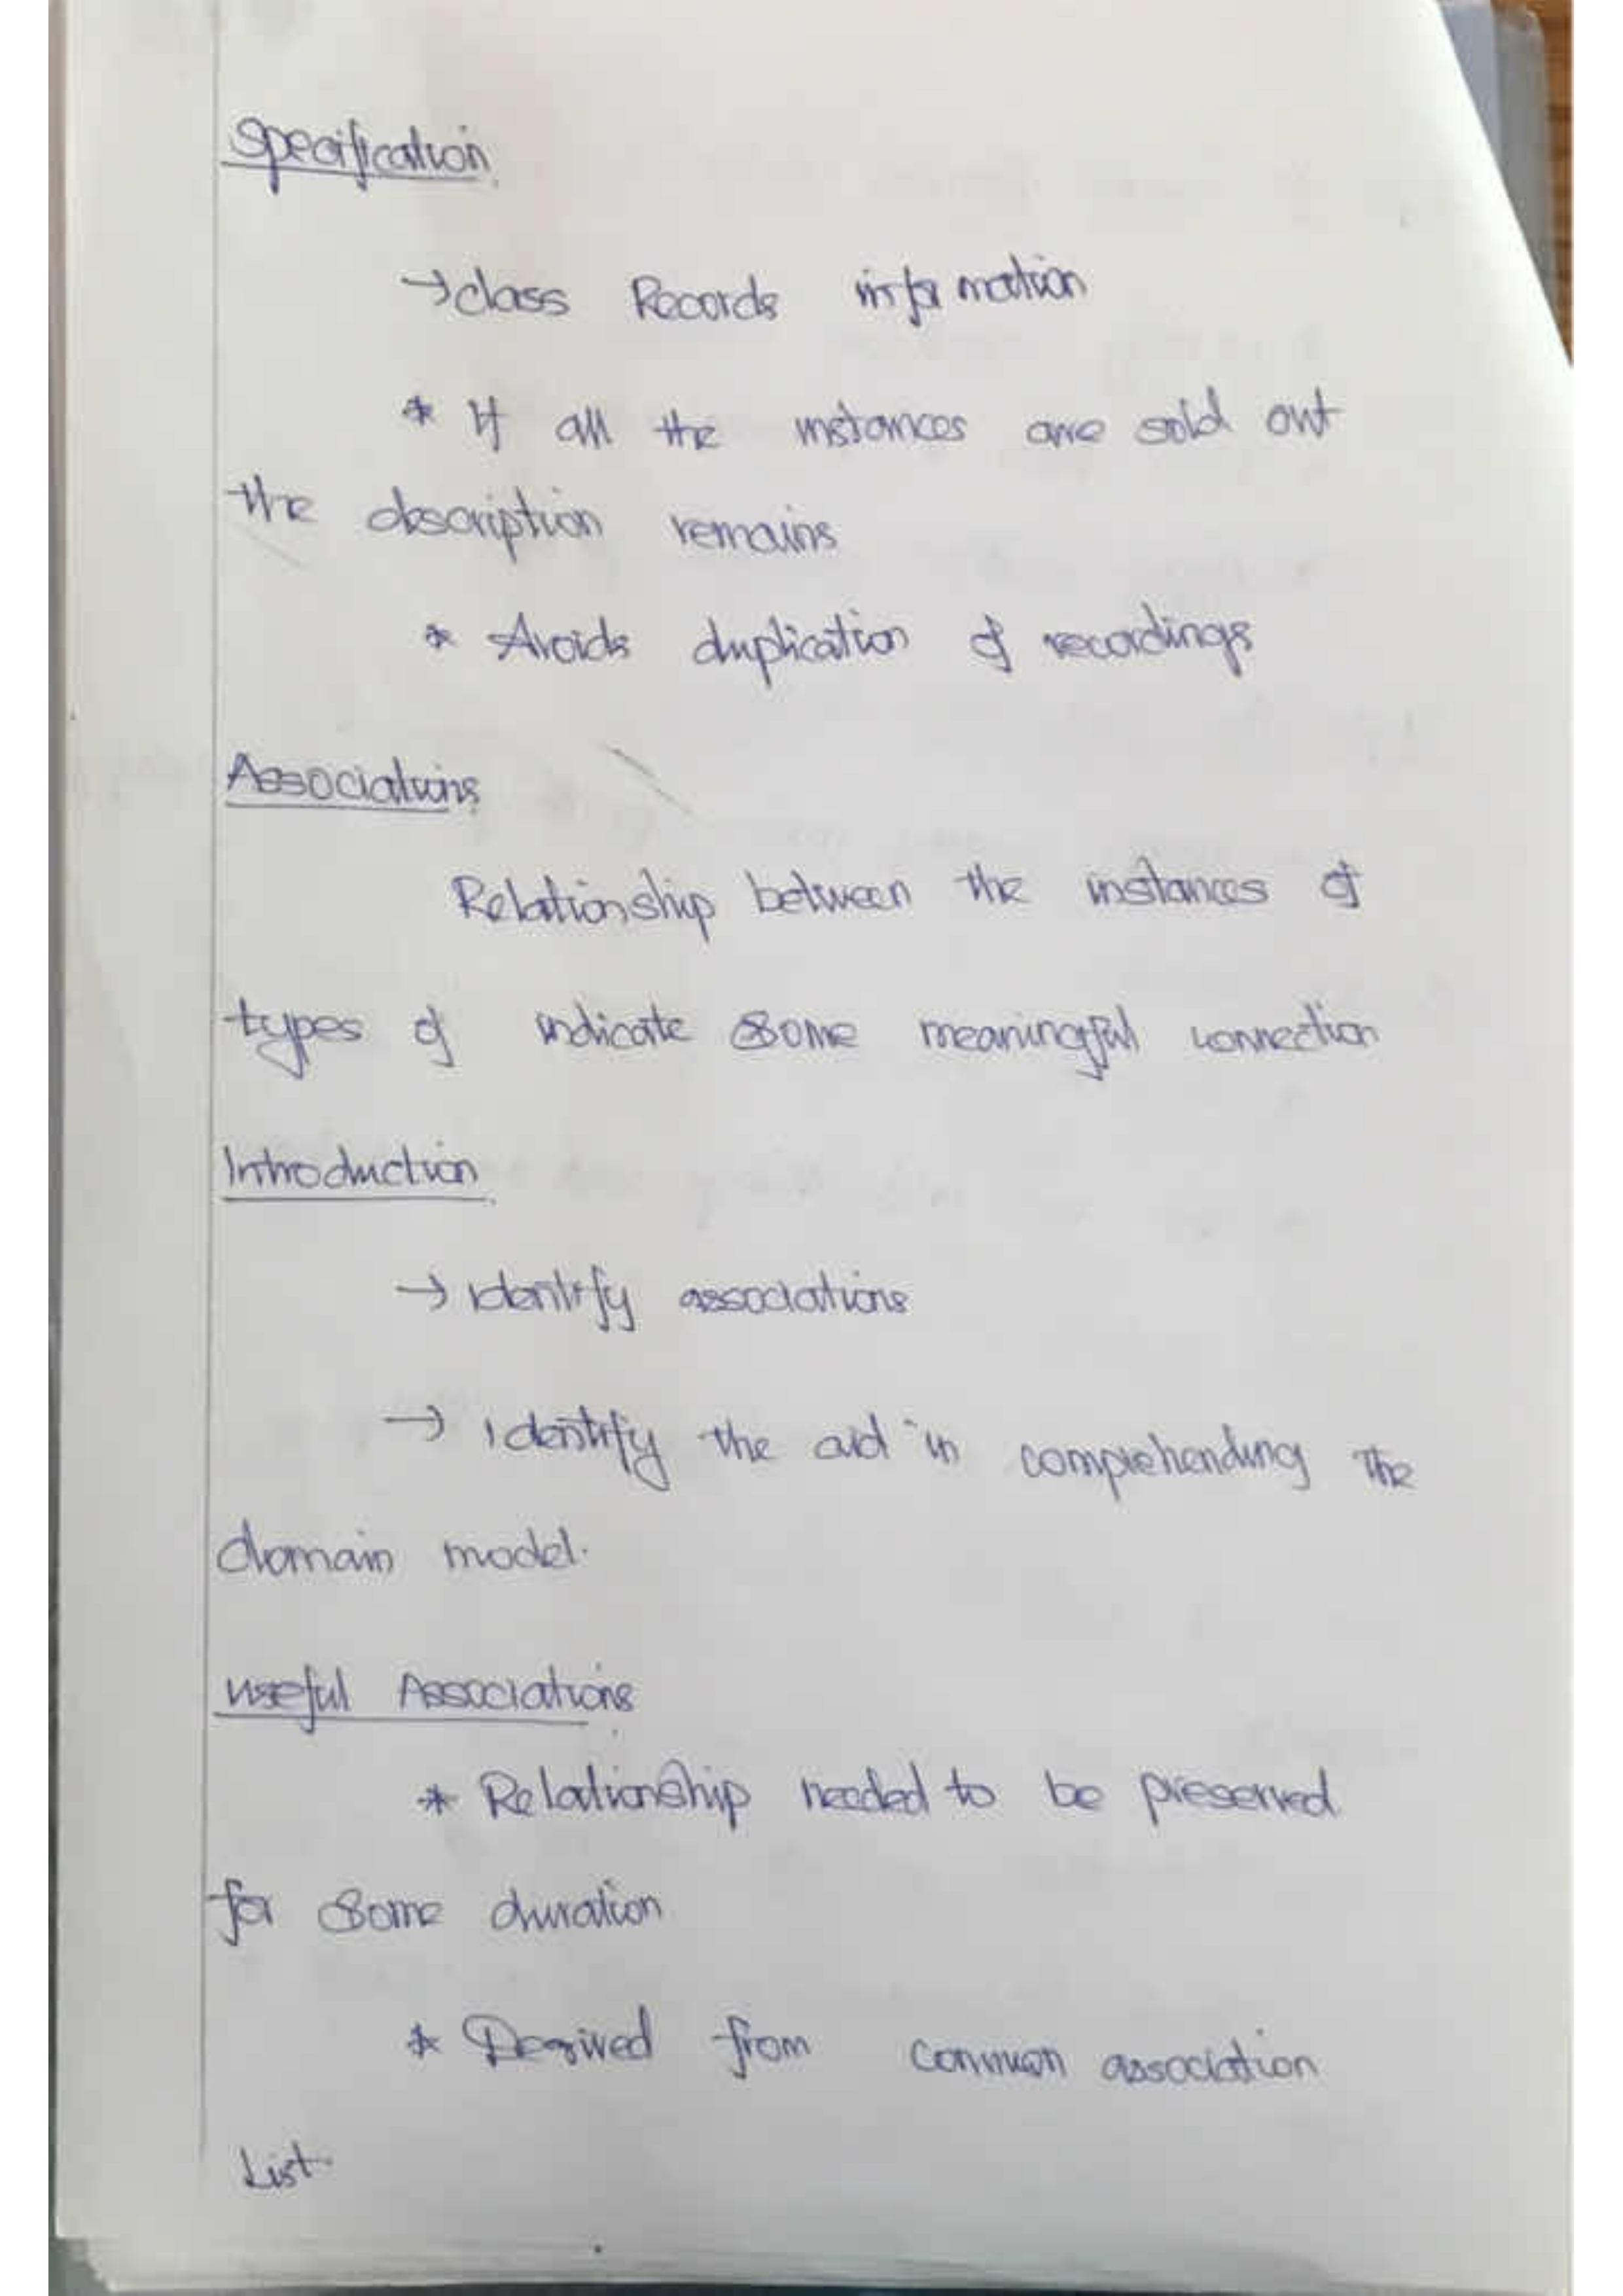 Specification
→ class Records information
* If all the instances are sold out
the description remains
* Avoids duplication of recordings
Associations
Relationship between the instances of
types of indicate some meaningful connection
Introduction
→ Identify associations
→ Identify the aid in comprehending the
domain model.
useful Associations
* Relationship needed to be preserved
for some duration
* Derived from common association
List.